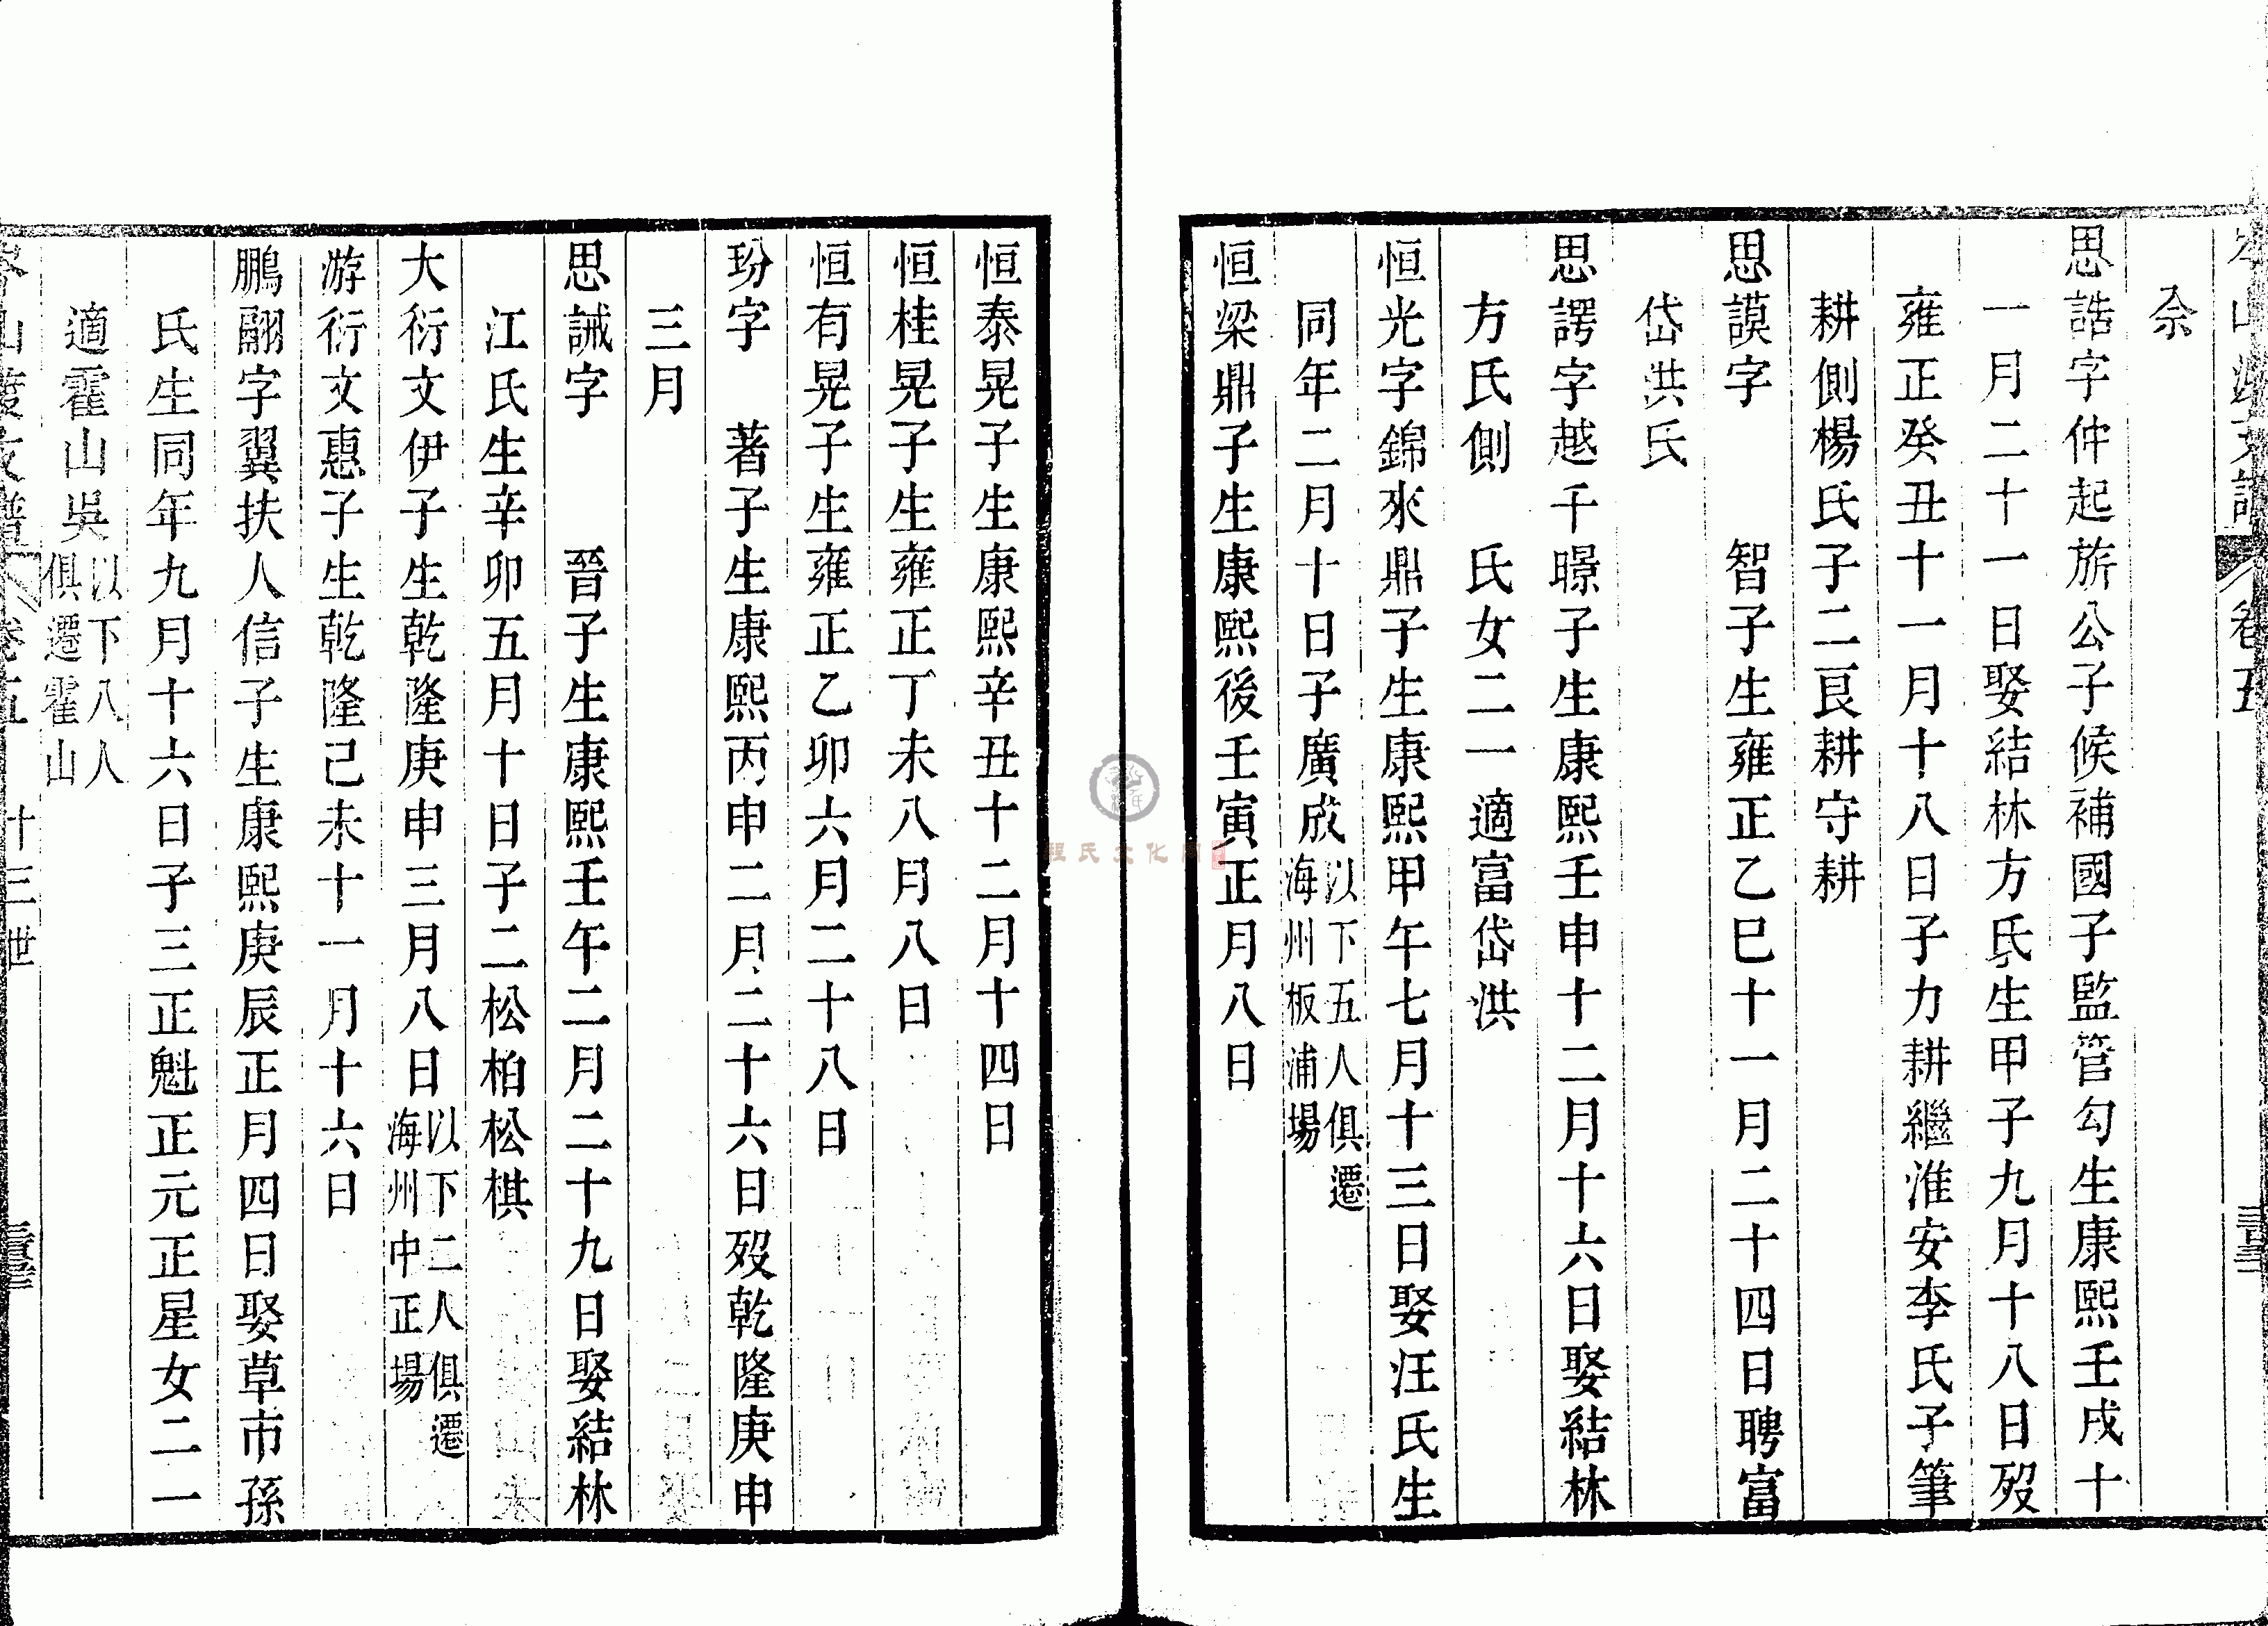 佘
思誥字仲起旂公子候補國子監管勾生康熙壬戌十
一月二十一日娶結林方氏生甲子九月十八日歿
雍正癸丑十一月十八日子力耕繼淮安李氏子筆
耕側楊氏子二艮耕守耕
思謨字　　智子生雍正乙巳十一月二十四日聘富
岱洪氏
思諤字越千暻子生康熙壬申十二月十六日娶結林
方氏側　氏女二一適富岱洪
恒光字錦來鼎子生康熙甲午七月十三日娶汪氏生
同年二月十日子廣成以下五人俱遷海州板浦場
恒梁鼎子生康熙後壬寅正月八日
恒泰晃子生康熙辛丑十二月十四日
恒桂晃子生雍正丁未八月八日
恒有晃子生雍正乙卯六月二十八日
玢字　著子生康熙丙申二月二十六日歿乾隆庚申
三月
思誡字　　晉子生康熙壬午二月二十九日娶結林
江氏生辛卯五月十日子二松柏松棋
大衍文伊子生乾隆庚申三月八日以下二人俱遷海州中正場
游衍文惠子生乾隆己未十一月十六日
鵬翮字翼扶人信子生康熙庚辰正月四日娶草市孫
氏生同年九月十六日子三正魁正元正星女二一
適霍山吳以下八人俱遷霍山
卷五　十三世
程氏文化网